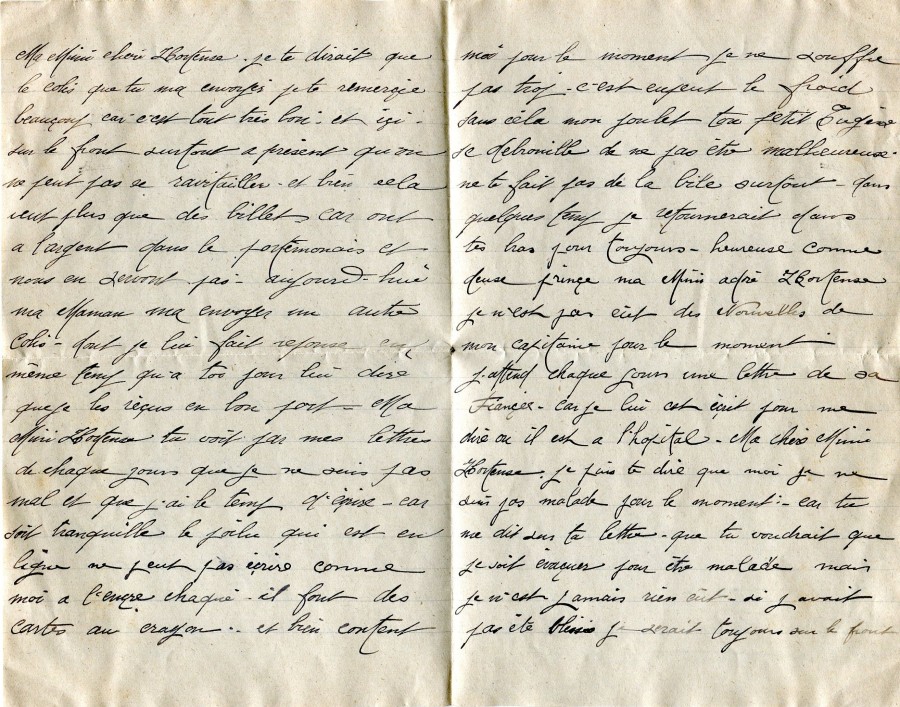 Ma Mimi cheri Hortense. je te dirait que
le colis que tu ma envoyer je te remerçie
beaucoup car c'est tout très bon. et içi -
sur le front surtout a présent qu'on
ne peut pas se ravitailler - et bien cela
veut plus que des billets car ont
a l'argent dans le portemonais et
nous en servont pas - aujourd-hui
ma Maman ma envoyer un autre
colis - dont je lui fait reponse en
même temp qu'a toi pour lui dire
que je les reçus en bon port - Ma
Mimi Hortense tu voit par mes lettres
de chaque jours que je ne suis pas
mal et que j-ai le temp d'écrire - car
soit tranquille le poilu qui est en
ligne ne peut pas écrire comme
moi a l'encre chaque - il font des
cartes au crayon - et bien content
moi pour le moment je ne souffre
pas trop - c'est le froid
sans cela mon poulet ton petit Eugène
se debrouille de ne pas être malheureuse.
ne te fait pas de la bile surtout - dans
quelques temp je retournerait dans
tes bras pour toujours - heureuse comme
deuse prinçe ma Mimi adré Hortense
je n'est pas eut des Nouvelles de
mon capitaine pour le moment
j-attend chaque jours une lettre de sa
Françee - car je lui est écrit pour me
dire ou il est a l'hopital - Ma chère Mimi
Hortense. je puis te dire que moi je ne
suis pas malade pour le moment - car tu
me dit sur ta lettre - que tu voudrait que
je soit évaquer pour être malade mais
je n'est jamais rien eut - si j avait
pas été je serait toujours sur le front